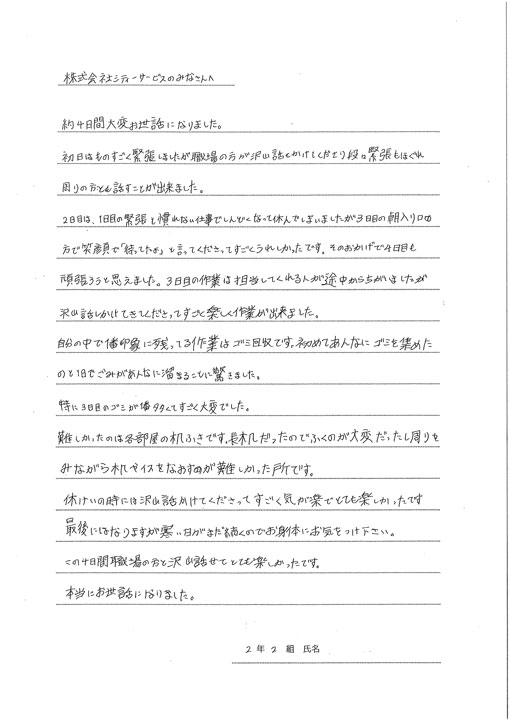 株式会社シティーサービスのみなさんへ
約4日間大変お世話になりました。
初日はものすごく緊張しましたが職場の方が沢山話しかけてくださり段々緊張もほぐれ
周りの方とも話すことが出来ました。
2日目は、1日目の緊張と慣れない仕事でしんどくなって休んでしまいましたが3日目の朝入り口の
方で笑顔で「待ってたよ」と言ってくださってすごくうれしかったです。そのおかげで4日目も
頑張ろうと思えました。3日目の作業は担当してくれる人が途中からちがいましたが
沢山話しかけてきてくださってすごく楽しく作業が出来ました。
自分の中で1番印象に残ってる作業はゴミ回収です。初めてあんなにゴミを集めた
のと1日でごみがあんなに溜まることに驚きました。
特に3日目のゴミが1番多くてすごく大変でした。
難しかったのは各部屋の机ふきです。長机だったのでふくのが大変だったし周りを
みながら机やイスをなおすのが難しかった所です。
休けいの時には沢山話かけてくださってすごく気が楽でとても楽しかったです
最後にはなりますが寒い日がまだ続くのでお身体にお気をつけ下さい。
この4日間職場の方と沢山話せてとても楽しかったです。
本当にお世話になりました。
2年2組 氏名